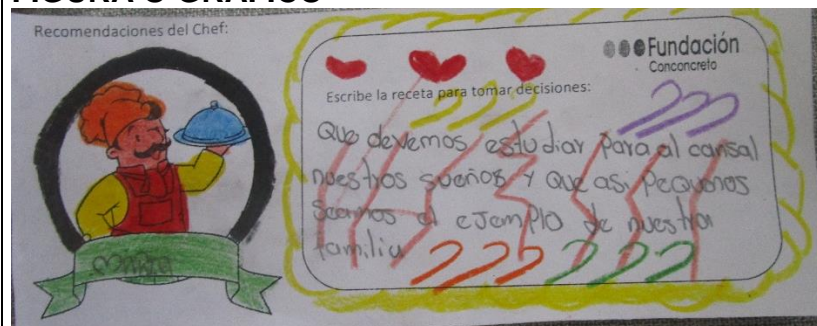 FIGURA O GRÁFICO
Recomendaciones del Chef:
Fundación
Conconcreto
Escribe la receta para tomar decisiones:
Que devemos estudiar para al cansal
nuestros sueños y que asi Pequenos
Seamos el ejemplo de nuestra
familia